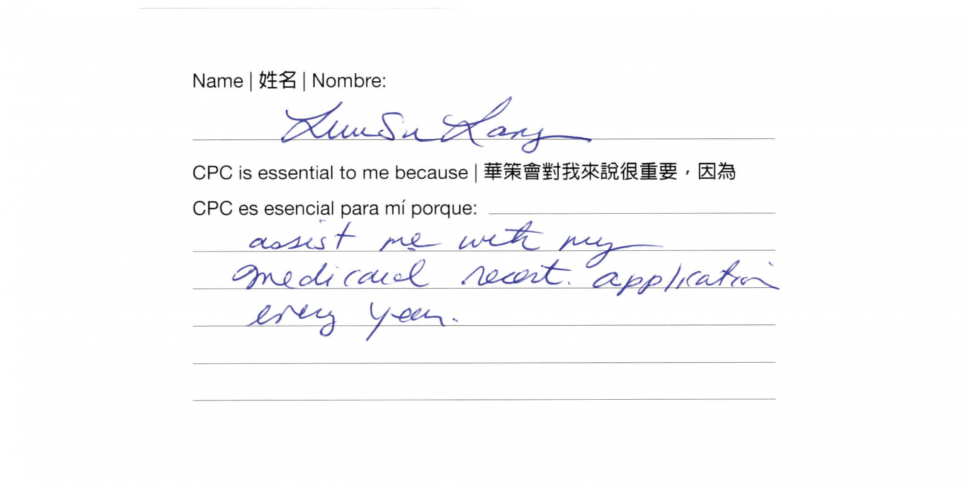 Name | 姓名 | Nombre:
CPC is essential to me because | 華策會對我來說很重要，因為
CPC es esencial para mí porque:
assist me with my
medicaid recert. application
every year.